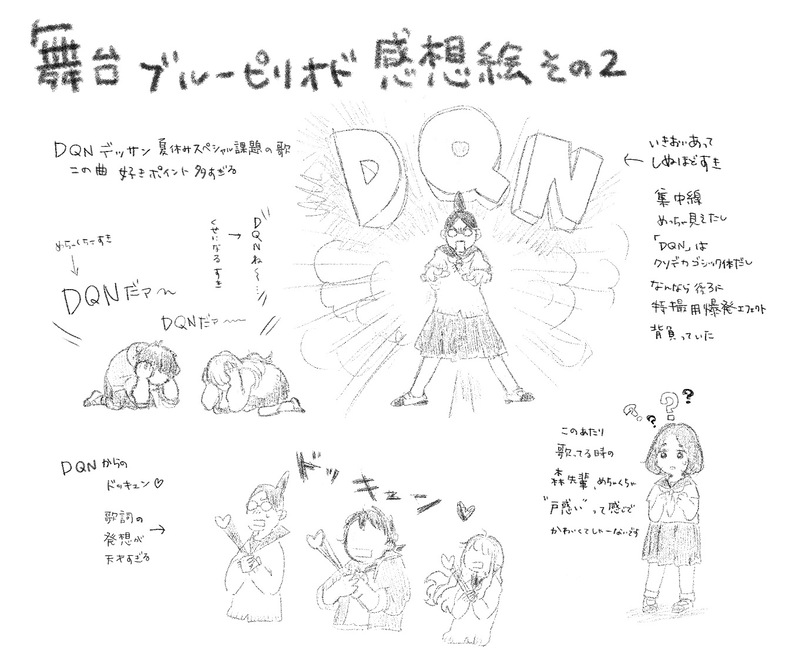 「舞台 ブルーピリオド 感想絵 その2
DQNデッサン 夏休みスペシャル課題の歌
この曲 好きポイント多すぎる
DQN
← いきおいあって
しぬほどすき
集中線
めっちゃ見えたし
「DQN」は
クソデカゴシック体だし
なんなら後ろに
特撮用爆発エフェクト
背負っていた
めちゃくちゃすき
↓
DQNだァ〜
DQNだァ〜〜
DQNね〜〜…
→
すき
DQNからの
ドッキュン♡
歌詞の →
発想が
天才すぎる
ドッキューン♡
? ? ? ?
このあたり
歌ってる時の
森先輩、めちゃくちゃ
"戸惑い"って感じで
かわいくてしゃーないです